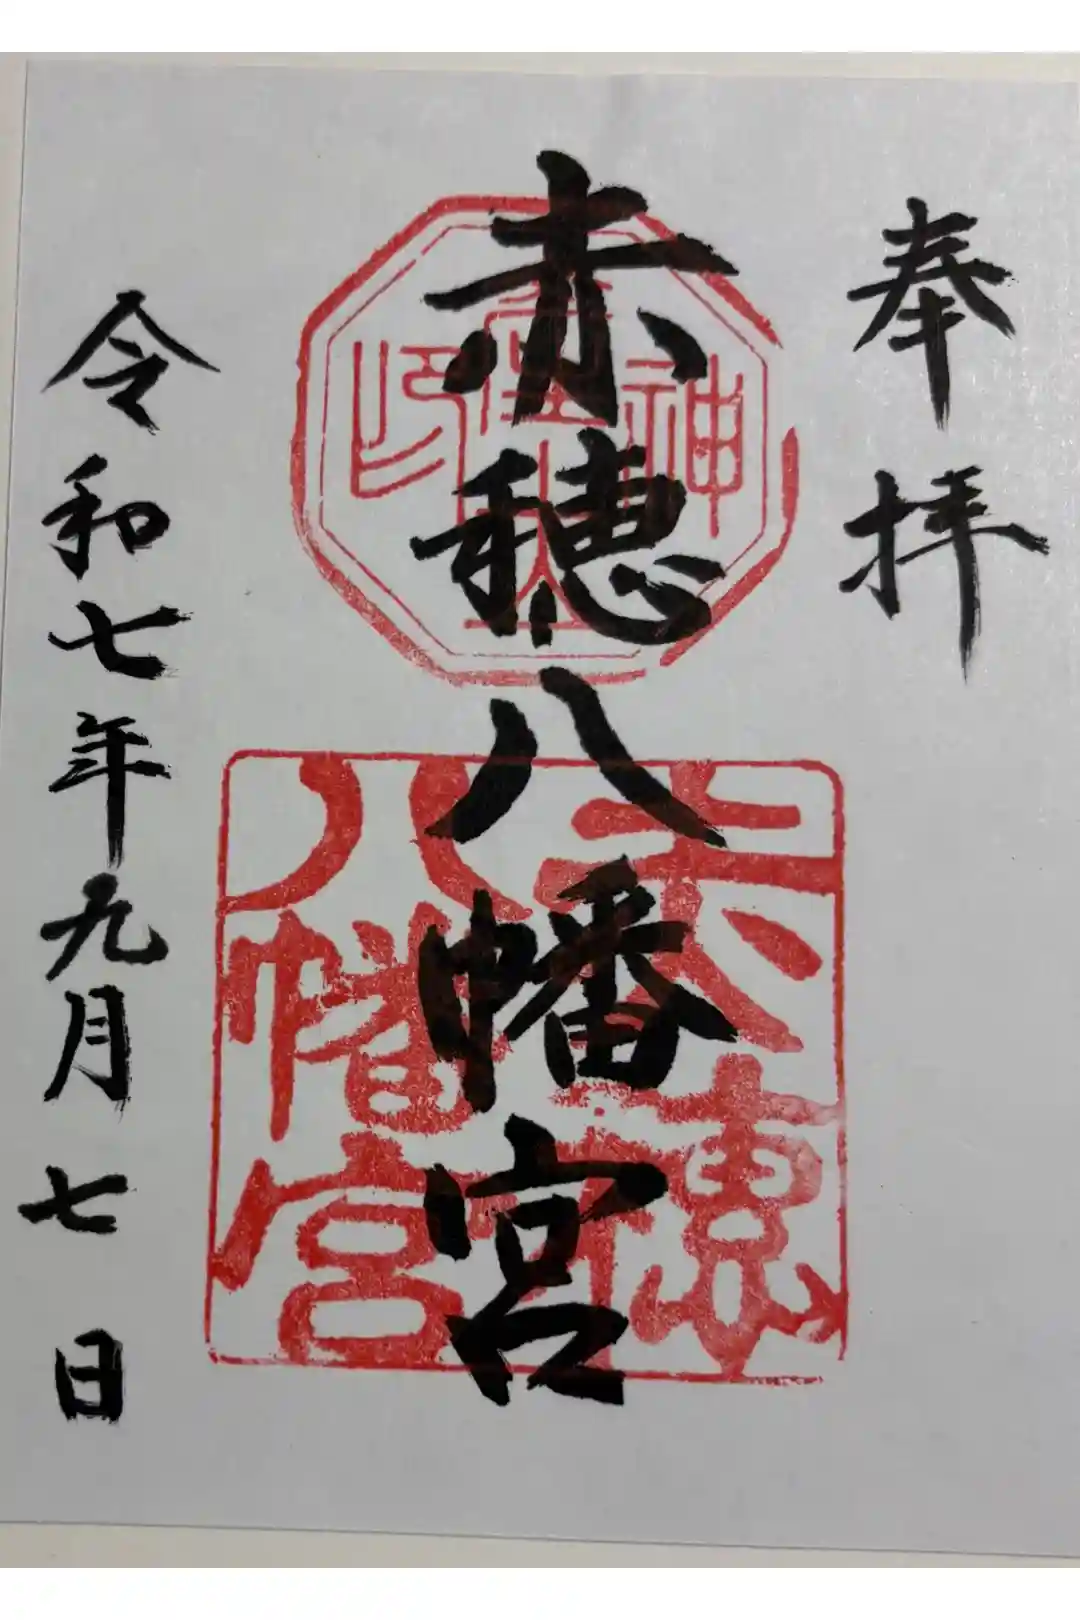 奉拝
赤穂八幡宮
令和七年九月七日
赤穂
八幡宮